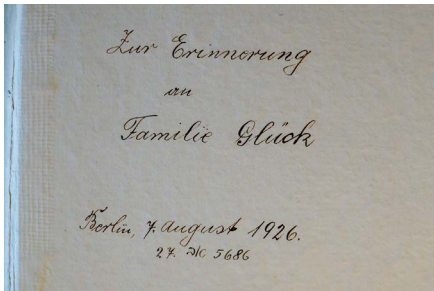 Zur Erinnerung
an
Familie Glück
Berlin, 7. August 1926.
27. 5686